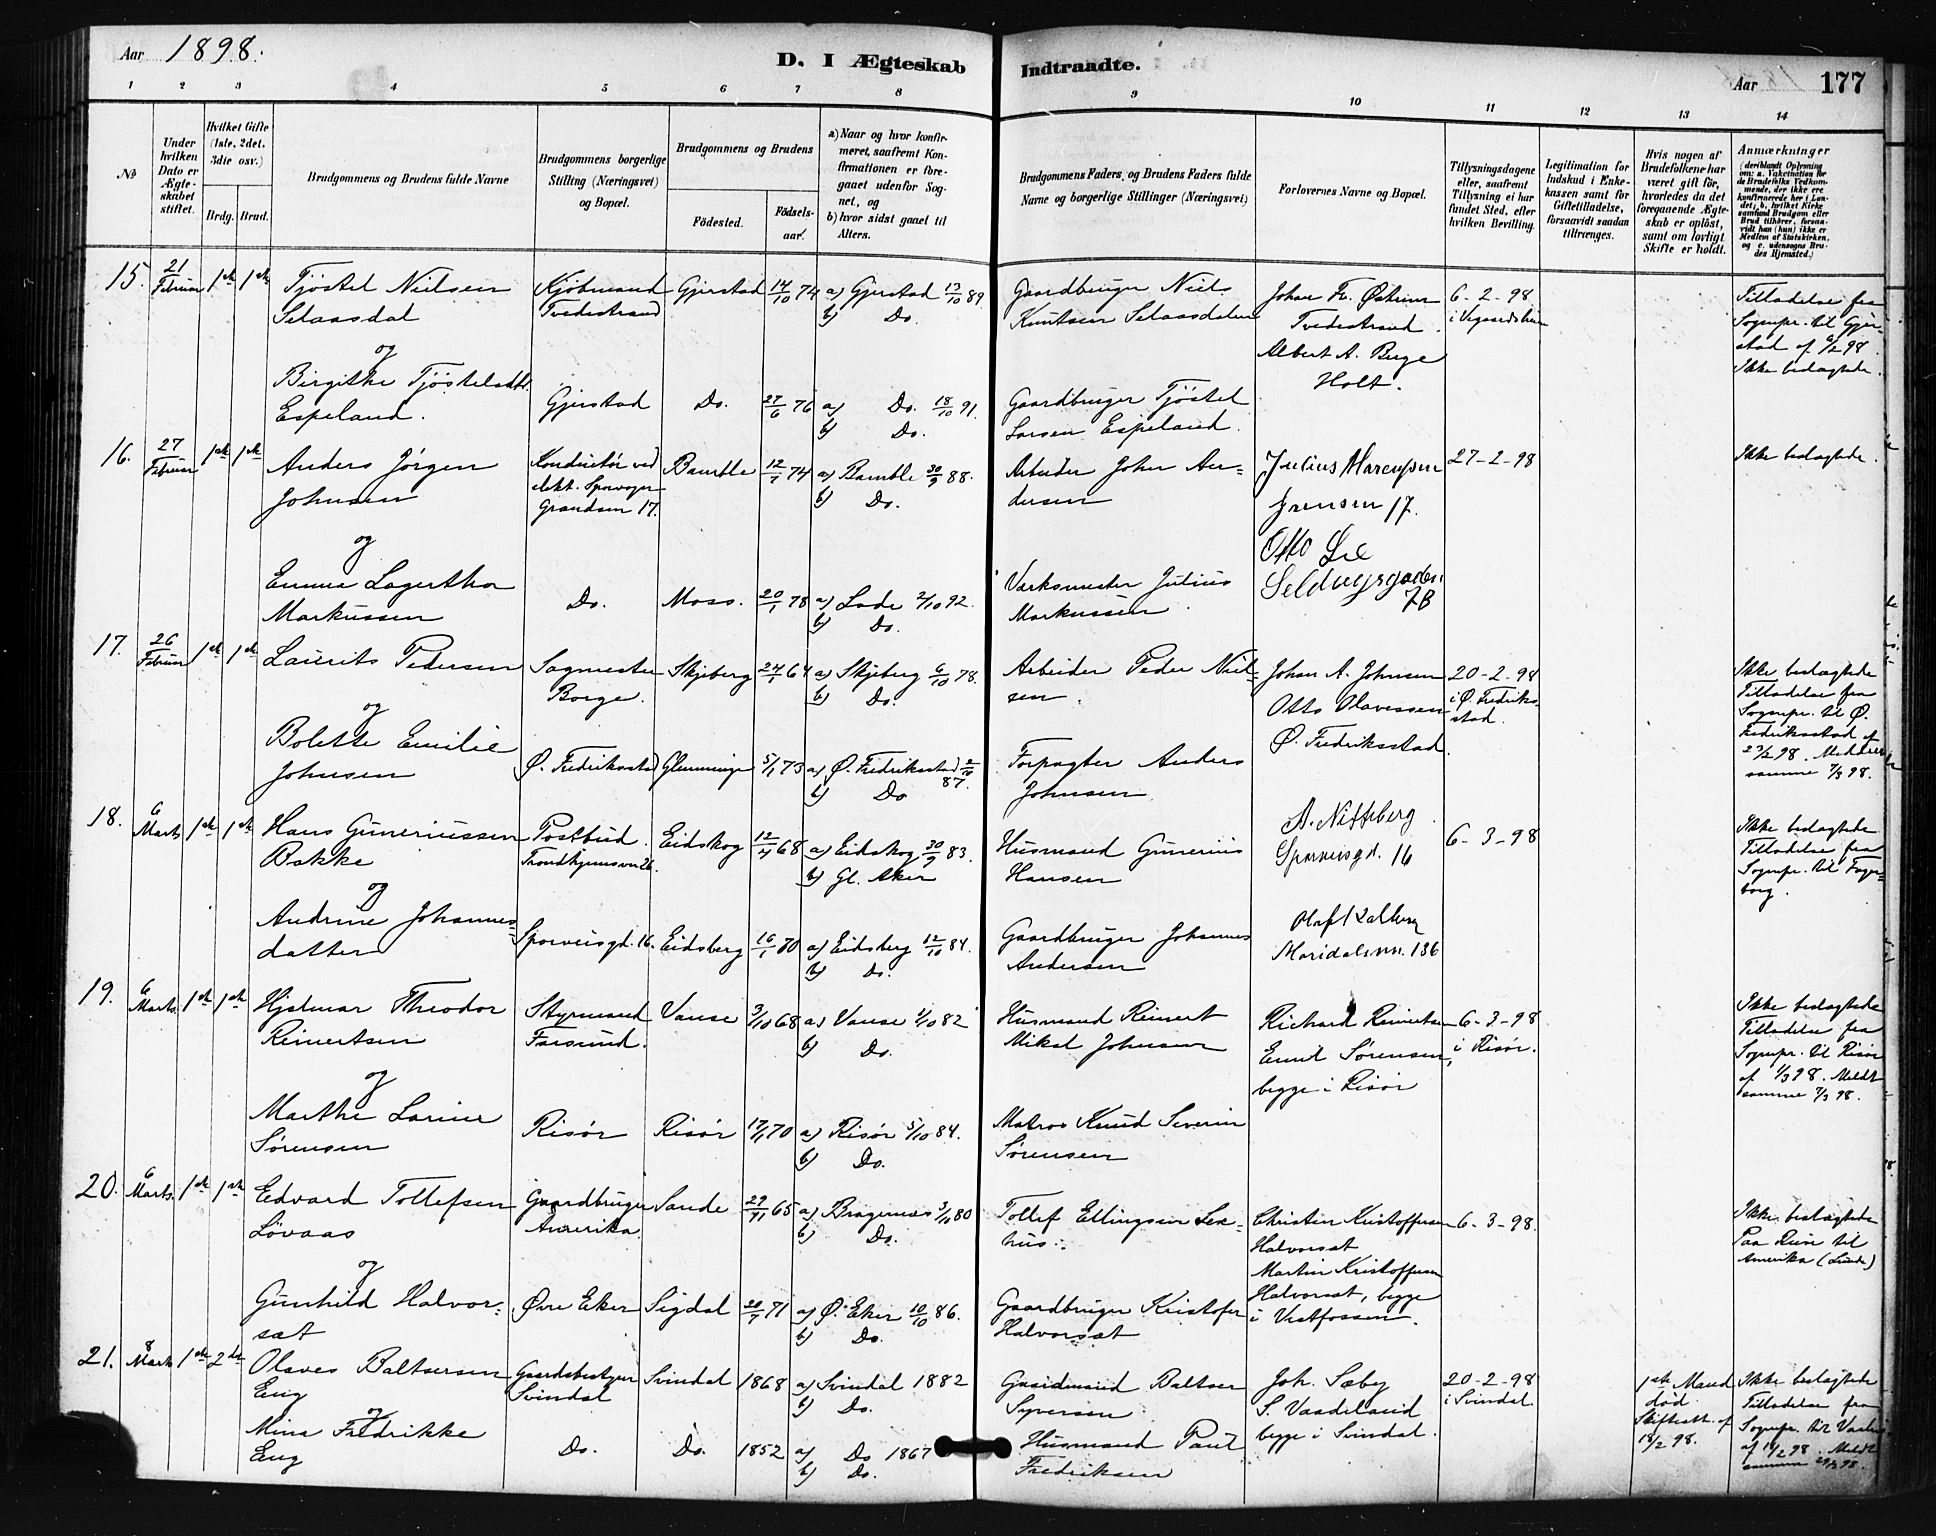 Aar 1898.
D. I Ægteskab Indtraadte.
Aar 177
1 2 3 4 5 6 7 8 9 10 11 12 13 14
No
Under hvilken Dato er Ægteskabet stiftet.
Hvilket Gifte (1ste, 2det, 3die osv.)
Brdg. Brud.
Brudgommens og Brudens fulde Navne
Brudgommens borgerlige Stilling (Næringsvei) og Bopæl.
Brudgommens og Brudens
Födested.
Födselsaar.
a) Naar og hvor konfirmeret, saafremt Konfirmationen er foregaaet udenfor Sognet, og
b) hvor sidst gaaet til Alters.
Brudgommens Faders og Brudens Faders fulde Navne og borgerlige Stillinger (Næringsvei)
Forlovernes Navne og Bopæl.
Tillysningsdagene eller, saafremt Tillysning ei har fundet Sted, efter hvilken Bevilling.
Legitimation for Indskud i Enkekassen samt for Giftetilladelse, forsaavidt saadan tiltrænges.
Hvis nogen af Brudefolkene har været gift för, hvorledes da det foregaaende Ægteskab er oplöst, samt om lovligt Skifte er holdt.
Anmærkninger
(deriblandt Oplysning om: a. Vakcination for de Brudefolks Vedkommende, der ikke ere konfirmerede her i Landet; b. hvilket Kirkesamfund Brudgom eller Brud tilhörer, forsaavidt han (hun) ikke er Medlem af Statskirken, og c. udensogns Brudes Hjemsted.)
15. 21 Februar 1ste 1ste
Tjöstel Nielsen Selaasdal
Kjöbmand Tvedestrand
Gjerstad 14/10 74 a) Gjerstad 13/10 89
b) Do.
Gaardbruger Niels Knutsen Selaasdalen
Johan Fr. Tvedestrand
Albert A. Holt.
6-2-98
Tilladelse fra Sognepr. til Gjerstad af 98
Ikke beslægtede.
og
Birgithe Tjöstelsdtr. Espeland.
Gjerstad Do. 27/6 76 a) Do. 18/10 91.
b) Do.
Gaardbruger Tjöstel Larsen Espeland.
16. 27 Februar 1ste 1ste
Anders Jörgen Johnsen
Konduktör ved elekt. Sporvogn Grændsen 17.
Bamble 12/1 74 a) Bamble 30/9 88.
b) Do.
Arbeider John Andersen
Julius Marcussen
Grensen 17.
Otto Lie
27-2-98
Ikke beslægtede.
og
Emma Lagertha Markussen
Do. Moss. 20/1 78 a) Lade 2/10 92.
b) Do.
Værksmester Julius Markussen
17. 26 Februar 1ste 1ste
Laurits Pedersen
Sagmester Borge.
Skjeberg 24/1 64 a) Skjeberg 6/10 78.
b) Do.
Arbeider Peder Nielsen
Johan A. Johnsen
Otto Olavessen
Ø. Fredriksstad
20-2-98
i Ø. Fredriksstad.
Ikke beslægtede
Tilladelse fra Sognepr. til Ø. Fredriksstad af 23/2 98.
samme 7/3 98.
og
Bolette Emilie Johnsen
Ø. Fredriksstad Glemminge 5/1 73 a) Ø. Fredriksstad 87.
b) Do
Forpagter Anders Johnsen
18. 6 Marts 1ste 1ste
Hans Guneriussen Bakke
Postbud. Trondhjemsvn 26.
Eidskog 12/4 68 a) Eidskog 30/9 83.
b) Gl. Aker
Husmand Gunerius Hansen
A. Nitteberg
Sporveisgd. 16
6-3-98
Ikke beslægtede
Tilladelse fra Sognepr. til Fagerborg.
og
Andrine Johannesdatter
Sporveisgd. 16. Eidsberg 16/1 70 a) Eidsberg 12/10 84.
b) Do.
Gaardbruger Johannes Andersen
Olaf
Maridalsvn. 136
19. 6 Marts 1ste 1ste
Hjalmar Theodor Reinertsen
Styrmand Farsund.
Vanse 3/10 68 a) Vanse 1/10 82
b) Do.
Husmand Reinert Mikal Johnsen
Richard Reinertsen
Emil Sørensen,
begge i Risör
6-3-98
i Risör.
Ikke beslægtede
Tilladelse fra Sognepr. til Risör af 1/3 98. Meldt samme 7/3 98.
og
Marthe Larine Sørensen
Risör Risör 17/1 70 a) Risör 5/10 84.
b) Do.
Matros Knud Severin Sørensen
20. 6 Marts. 1ste 1ste
Edvard Tollefsen Lövaas
Gaardbruger Amerika
Sande 29/11 65 a) Bragernes 3/10 80
b) Do.
Tollef Ellingsen
Christen Kristoffersen Halvorsat
Martin Kristoffersen Halvorsat, begge i Vestfossen.
6-3-98.
Ikke beslægtede
Paa Reise til Amerika
og
Gunhild Halvorsat
Øvre Eker Sigdal 20/1 71 a) Ø. Eker 10/10 86.
b) Do.
Gaardbruger Kristofer Halvorsat
21. 8 Marts 1ste 2det
Olaves Baltsersen Eng
Gaardsbestyrer Svindal
Svindal 1868 a) Svindal 1882
b) Do.
Gaardmand Baltser Syversen
Joh. Sæby
S. Vaadeland
begge i Svindal.
20-2-98
i Svindal.
1ste Mand död.
Skifteatt. af 18/2 98.
Ikke beslægtede
Tilladelse fra Sognepr. til
samme
og
Mina Fredrikke Eng
Do. Do. 1852 a) Do 1867
b) Do.
Husmand Paul Fredriksen